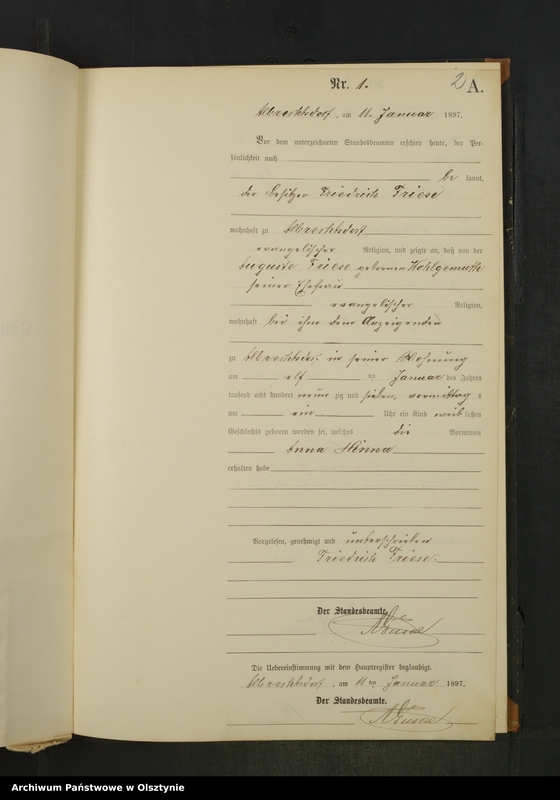 Nr. 1.
2
A.
Albrechtsdorf, am 11. Januar 1897.
Vor dem unterzeichneten Standesbeamten erschien heute, der Per-
sönlichkeit nach
be kannt,
der Besitzer Friedrich Friese
wohnhaft zu Albrechtsdorf
evangelischer Religion, und zeigte an, daß von der
Auguste Friese geborenen Wohlgemuth
seiner Ehefrau
evangelischer Religion,
wohnhaft bei ihm dem Anzeigenden
zu Albrechtsdorf in seiner Wohnung
am elf ten Januar des Jahres
tausend acht hundert neun zig und sieben, vormittag s
um ein Uhr ein Kind weib lichen
Geschlechts geboren worden sei, welches die Vornamen
Anna Minna
erhalten habe
Vorgelesen, genehmigt und unterschrieben
Friedrich Friese.
Der Standesbeamte.
Die Uebereinstimmung mit dem Hauptregister beglaubigt.
Albrechtsdorf, am 11 ten Januar 1897.
Der Standesbeamte.
Archiwum Państwowe w Olsztynie